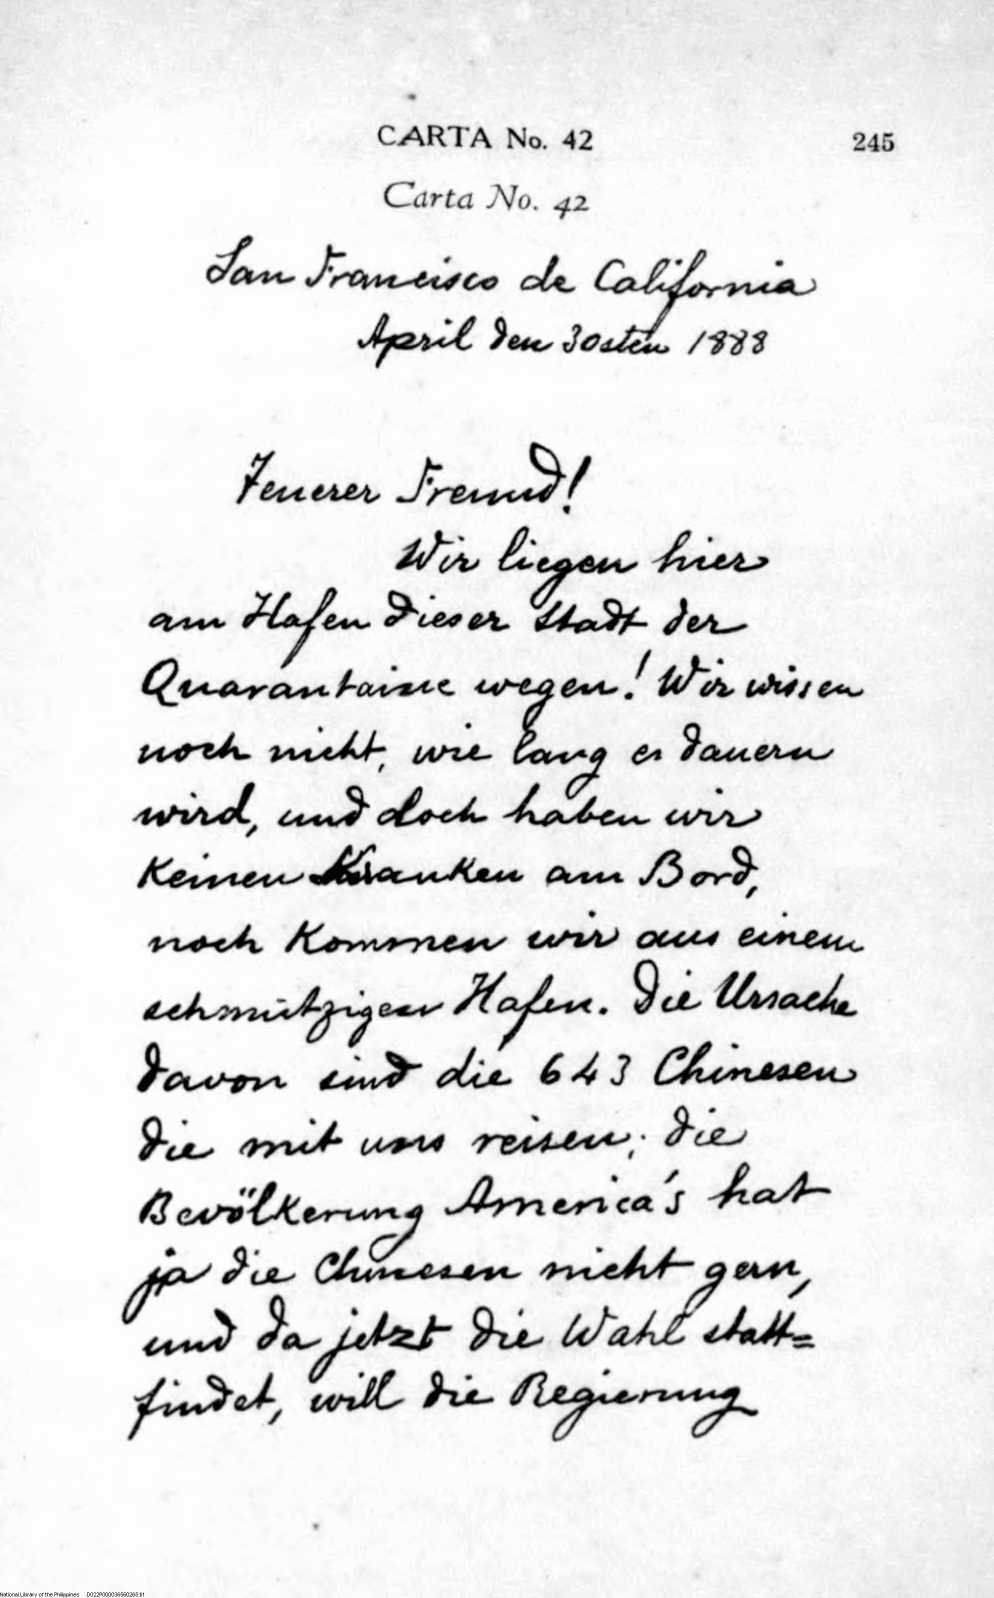 CARTA No. 42
245
Carta No. 42
San Francisco de California
April den 30sten 1888
Teuerer Freund!
Wir liegen hier
am Hafen dieser Stadt der
Quarantaine wegen! Wir wissen
noch nicht, wie lang es dauern
wird, und doch haben wir
keinen Kranken am Bord,
noch kommen wir aus einem
schmützigen Hafen. Die Ursache
davon sind die 643 Chinesen
die mit uns reisen; die
Bevölkerung America's hat
ja die Chinesen nicht gern,
und da jetzt die Wahl statt=
findet, will die Regierung
National Library of the Philippines